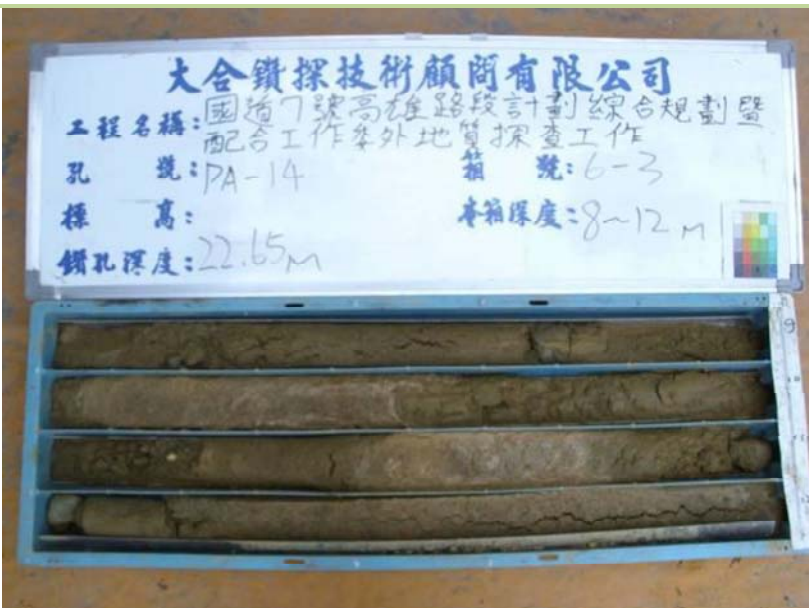 大合鑽探技術顧問有限公司
工程名稱：國道7號高雄路段計劃綜合規劃暨
配合工作委外地質探查工作
孔 號：PA-14 箱 號：6-3
標 高： 本箱深度：8~12m
鑽孔深度：22.65m
9